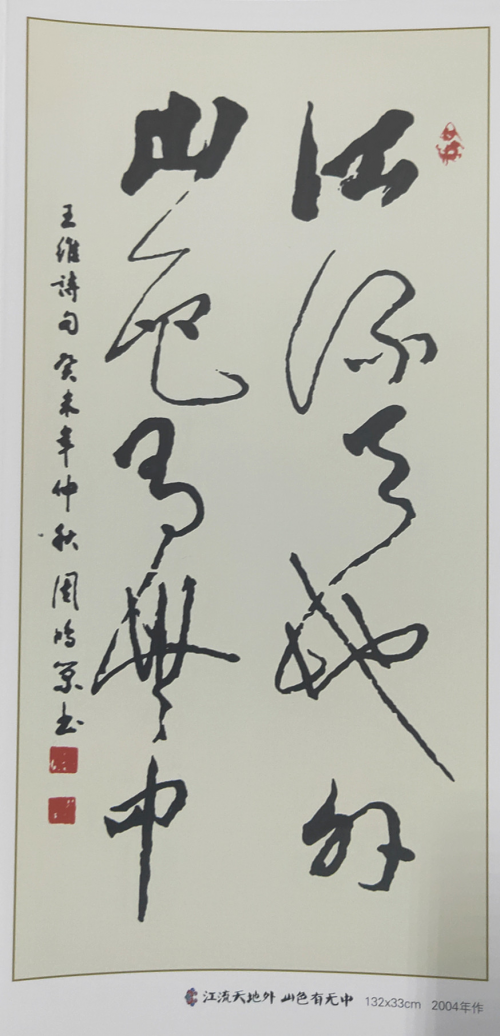 江流天地外
山色有無中
王維詩句 癸未年仲秋 周鸿景书
江流天地外 山色有无中 132x33cm 2004年作